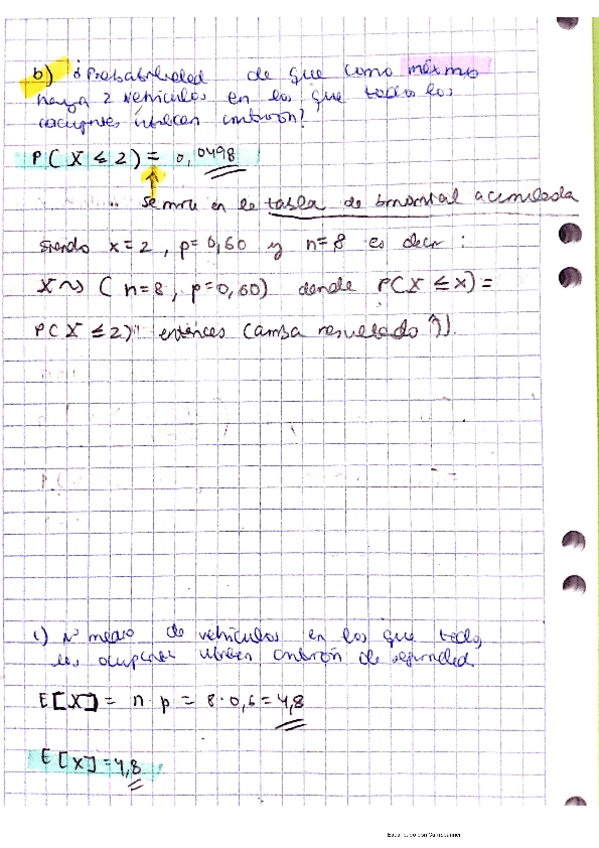 b) ¿Probabilidad de que como máximo
haya 2 vehículos en los que todos los
ocupantes utilicen cinturón?
P(X ≤ 2) = 0,0498
se mira en la tabla de binomial acumulada
siendo x=2, p=0,60 y n=8 es decir:
X ~ (n=8, p=0,60) donde P(X ≤ x) =
P(X ≤ 2) entonces cambia resultado
c) Nº medio de vehículos en los que todos
los ocupantes utilicen cinturón de seguridad.
E[X] = n · p = 8 · 0,6 = 4,8
E[X] = 4,8